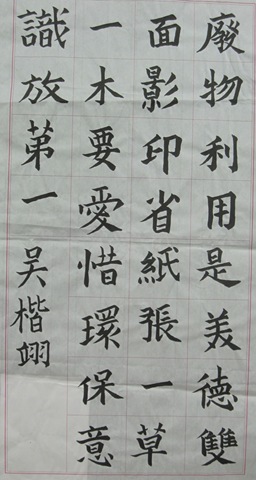 廢物利用是美德雙
面影印省紙張一草
一木要愛惜環保意
識放第一吳楷翊